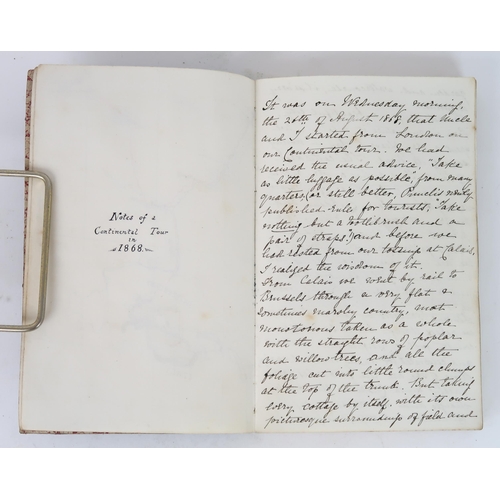 Notes of a
Continental Tour
in
1868.
It was on Wednesday morning,
the 26th of August 1868, that Uncle
and I started from London on
our Continental tour. We had
received the usual advice, "Take
as little luggage as possible", from many
quarters, (or still better, Punch's newly
published rule for tourists, "Take
nothing but a toothbrush and a
pair of straps") and before we
had rested from our tossing at Calais,
I realized the wisdom of it.
From Calais we went by rail to
Brussels through a very flat &
sometimes marshy country, most
monotonous taken as a whole
with the straight rows of poplar
and willow trees, and all the
foliage cut into little round clumps
at the top of the trunk. But taking
every cottage by itself, with its own
picturesque surroundings of field and